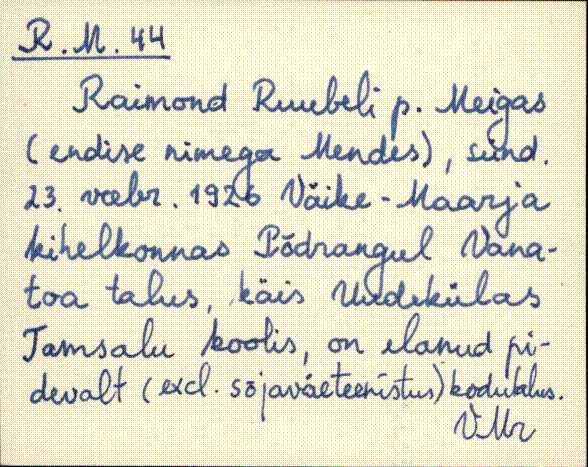 R. M. 44
Raimond Ruubeli p. Meigas
(endise nimega Mendes), sünd.
23. veebr. 1926 Väike-Maarja
kihelkonnas Põdrangul Vana-
toa talus, käis Uudekülas
Tamsalu koolis, on elanud pi-
devalt (excl. sõjaväeteenistus) kodutalus.
VMr